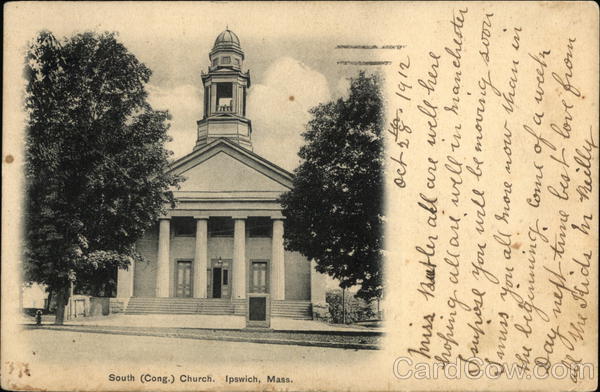 Oct 28th 1912
Miss Butler all are well here
hoping all are well in Manchester
I suppose you will be moving soon
I miss you all more now than in
the beginning. Come of a week
day next time best love from
all the Kids M Reilly
South (Cong.) Church. Ipswich, Mass.
CardCow.com